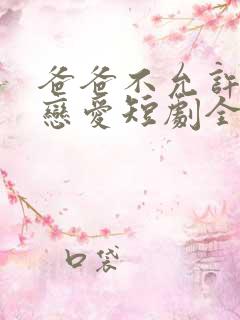 爸爸不允許
戀愛短劇全
口袋